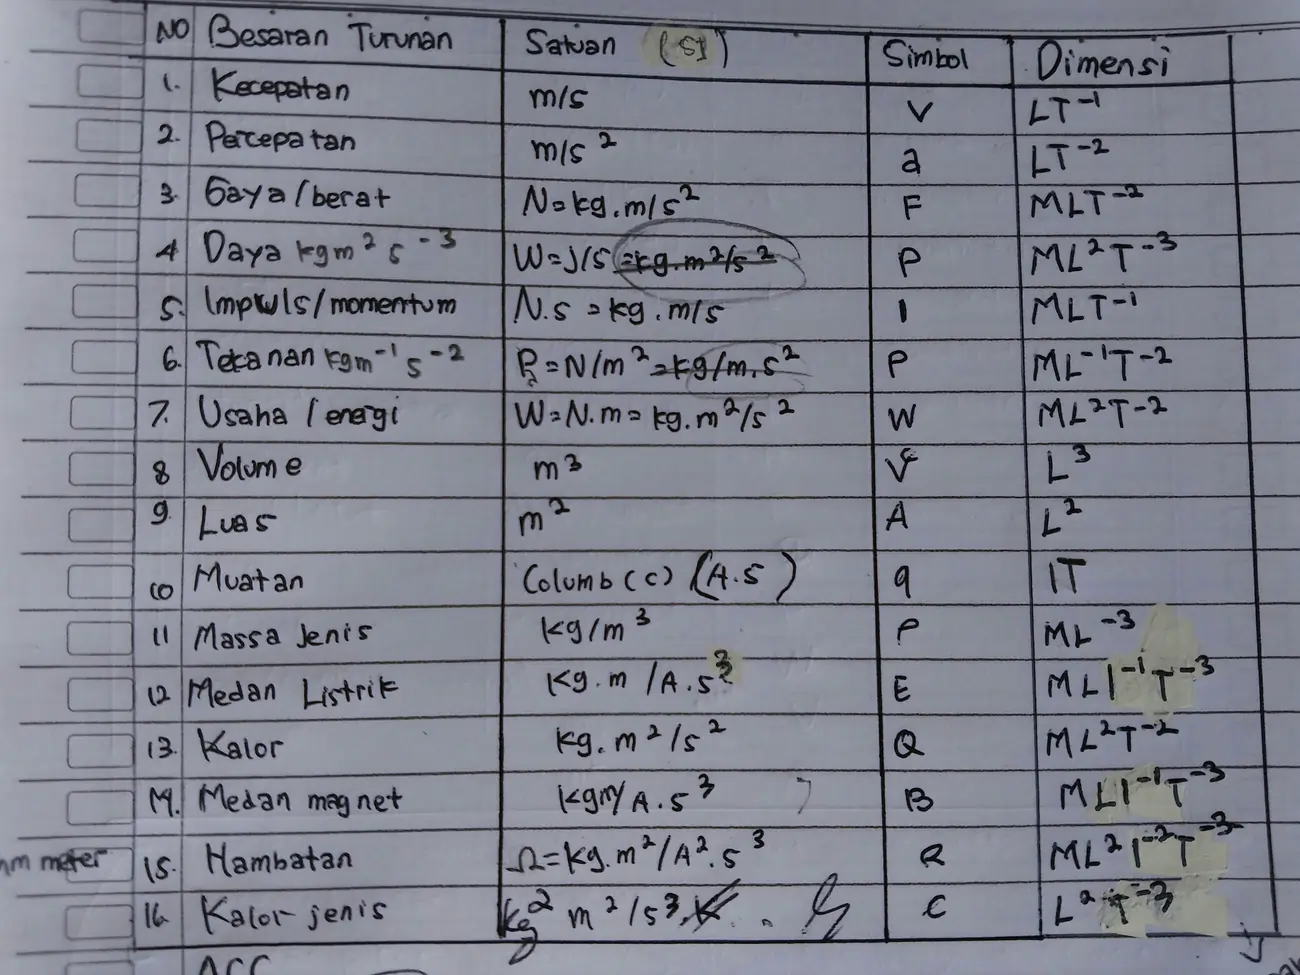 NO Besaran Turunan Satuan (SI) Simbol Dimensi
1. Kecepatan m/s V LT⁻¹
2. Percepatan m/s² a LT⁻²
3. Gaya/berat N=kg.m/s² F MLT⁻²
4 Daya kgm² s⁻³ W=J/s =kg.m²/s² P ML²T⁻³
5. Impuls/momentum N.s = kg.m/s I MLT⁻¹
6. Tekanan kgm⁻¹ s⁻² P=N/m²=kg/m.s² P ML⁻¹T⁻²
7. Usaha/energi W=N.m=kg.m²/s² W ML²T⁻²
8 Volume m³ V L³
9. Luas m² A L²
10 Muatan Columb (C) (A.s) q IT
11 Massa Jenis kg/m³ ρ ML⁻³
12 Medan Listrik kg.m/A.s³ E MLI⁻¹T⁻³
13. Kalor kg.m²/s² Q ML²T⁻²
14. Medan magnet kgm/A.s³ B MLI⁻¹T⁻³
meter 15. Hambatan Ω=kg.m²/A².s³ R ML²I⁻²T⁻³
16. Kalor jenis m²/s³ C L²T⁻³
ACC